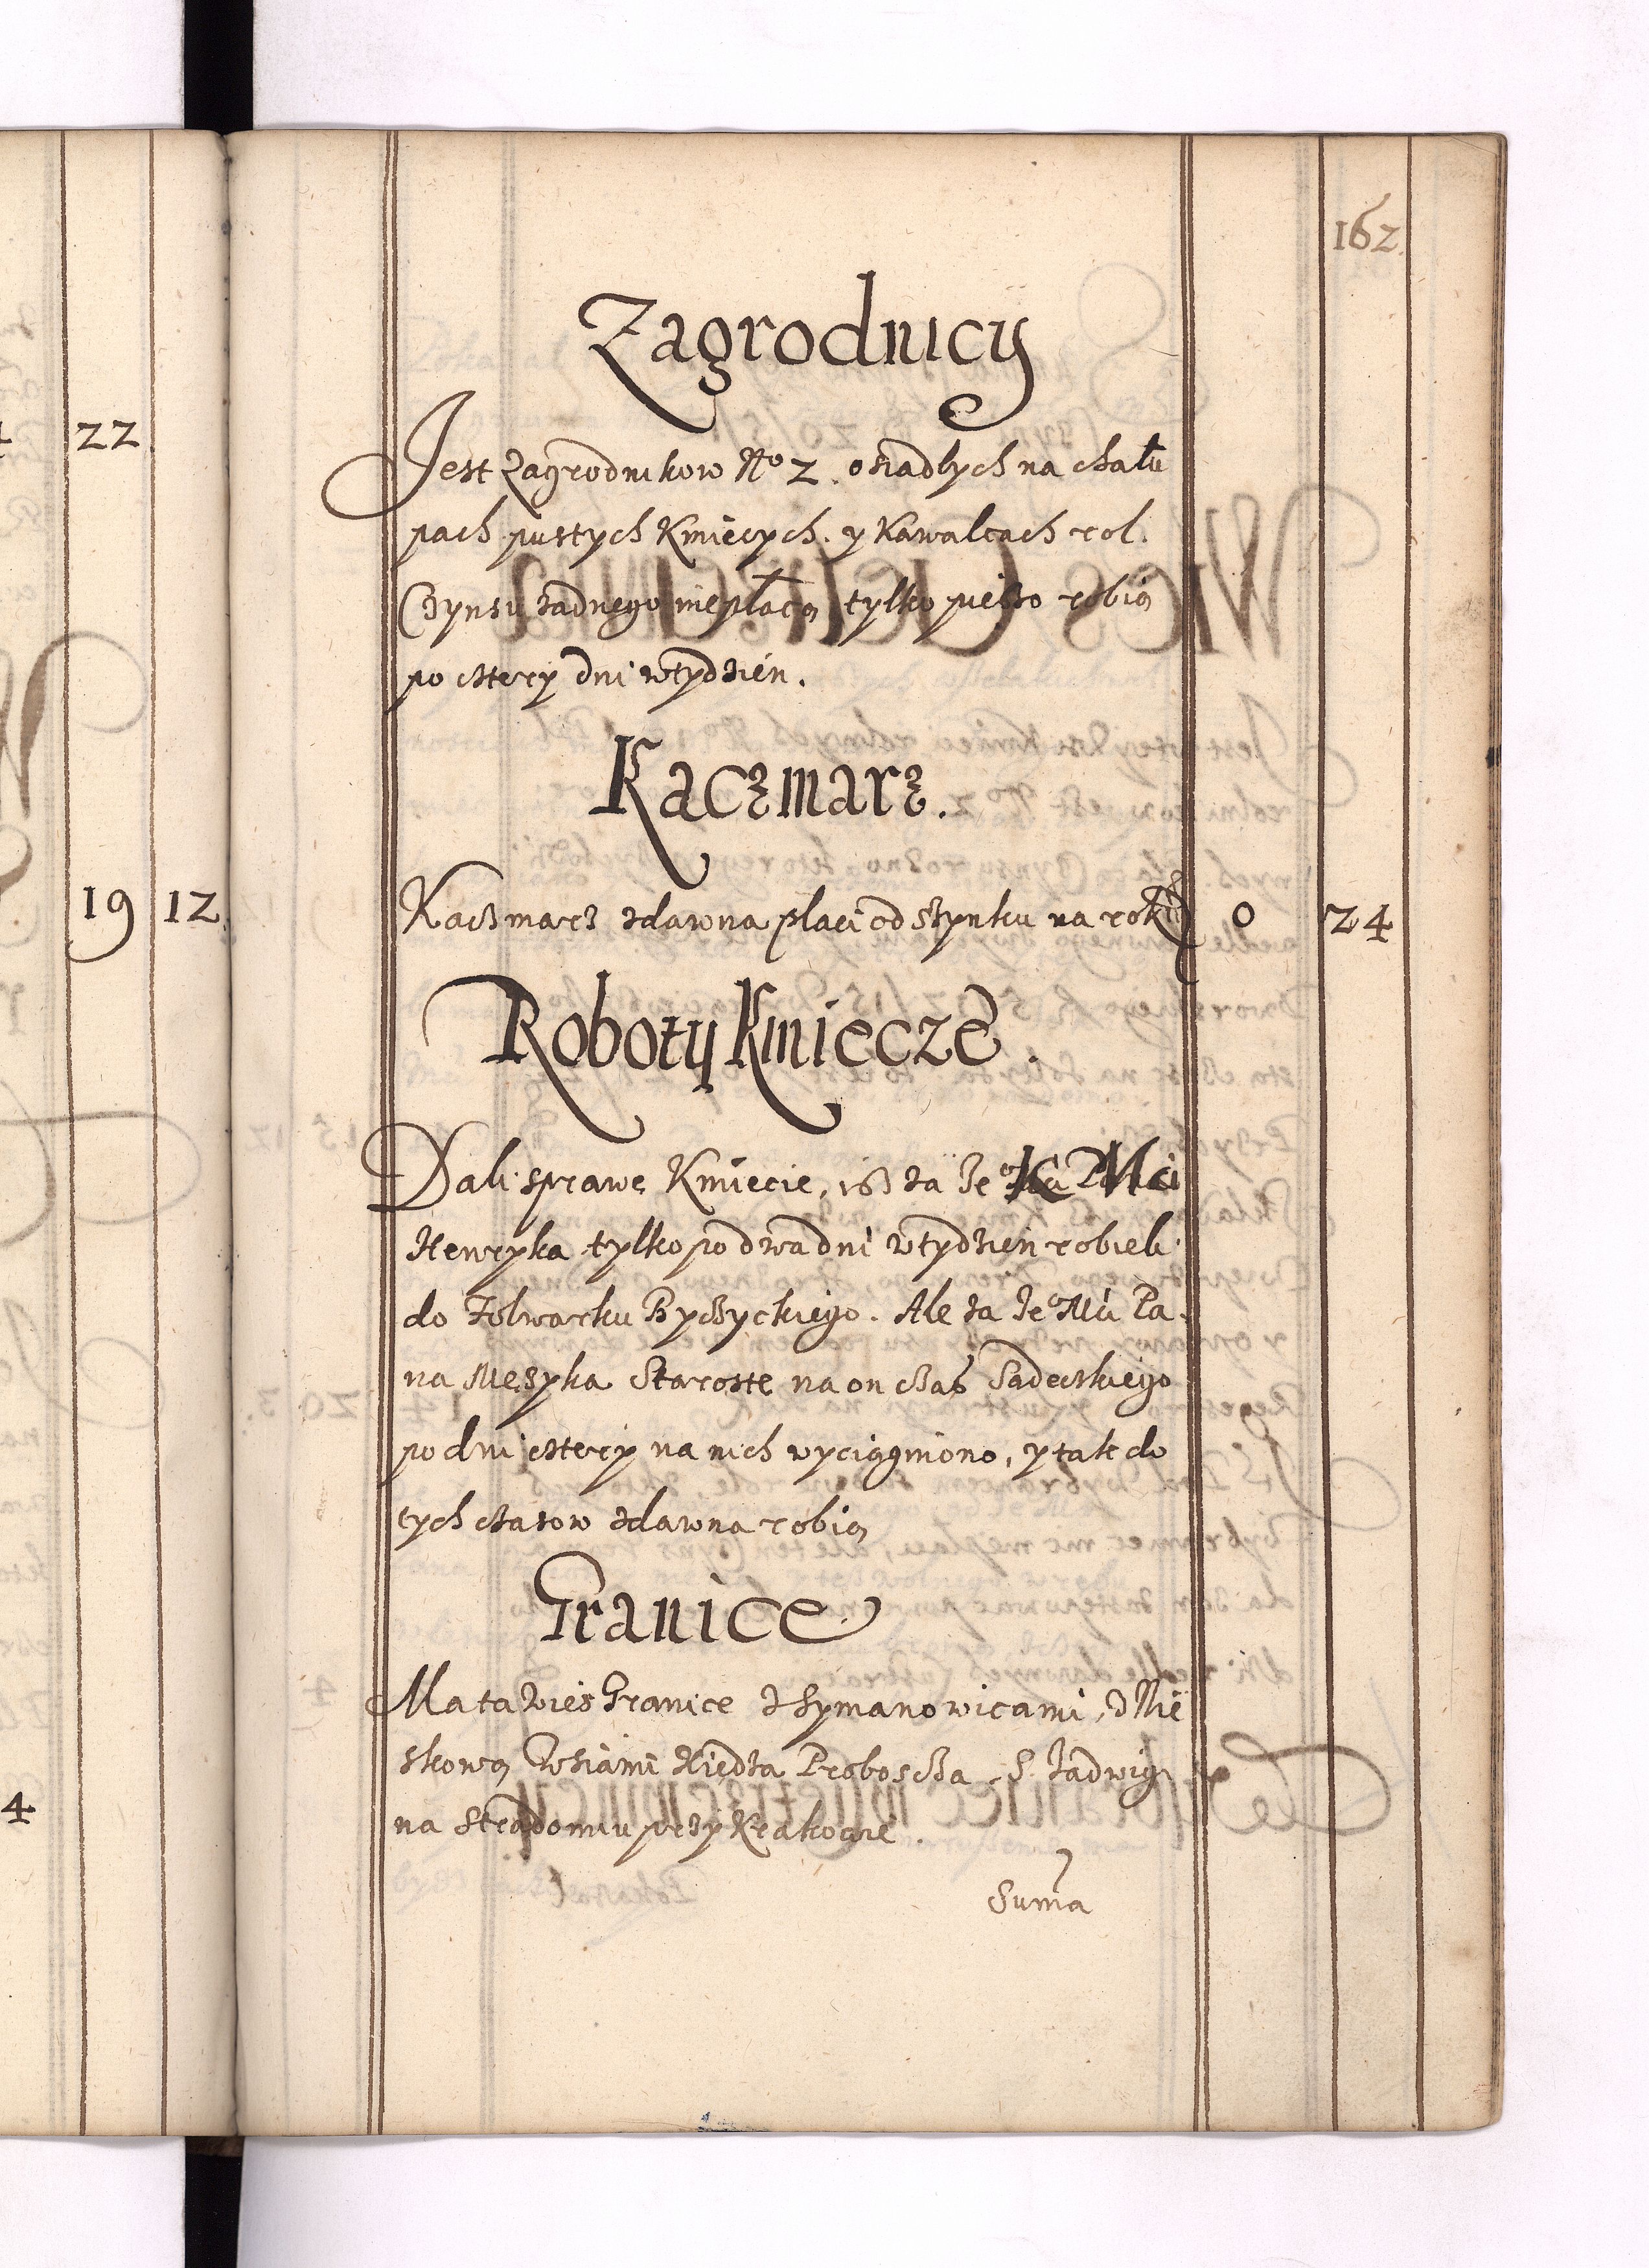 162
Zagrodnicy
Jest Zagrodnikow No 2. osiadłych na chału
pach pustych Kmiecych. y Kawalcach rol.
Czynszu żadnego niepłacą tylko pieszo robią
po cztery dni wtydzień.
Kaczmarz.
Kaczmarz zdawna płaci od szynku na rok 0 24
Roboty Kmiecze.
Dali sprawę Kmiecie, isz za Je K Mci
Henryka tylko po dwa dni wtydzień robieli
do Folwarku Byczyckiego. Ale za Je Mci Pa
na Mężyka Starostę na on czas Sądeckiego
po dni cztery na nich wyciągniono, y tak do
tych czasow zdawna robią
Granice
Ma ta Wieś Granice z Symanowicami, z Nie
skową Wsiami Xiędza Proboscza S. Jadwigi
na Stradomiu przy Krakowie.
Suma
22
19 12
4